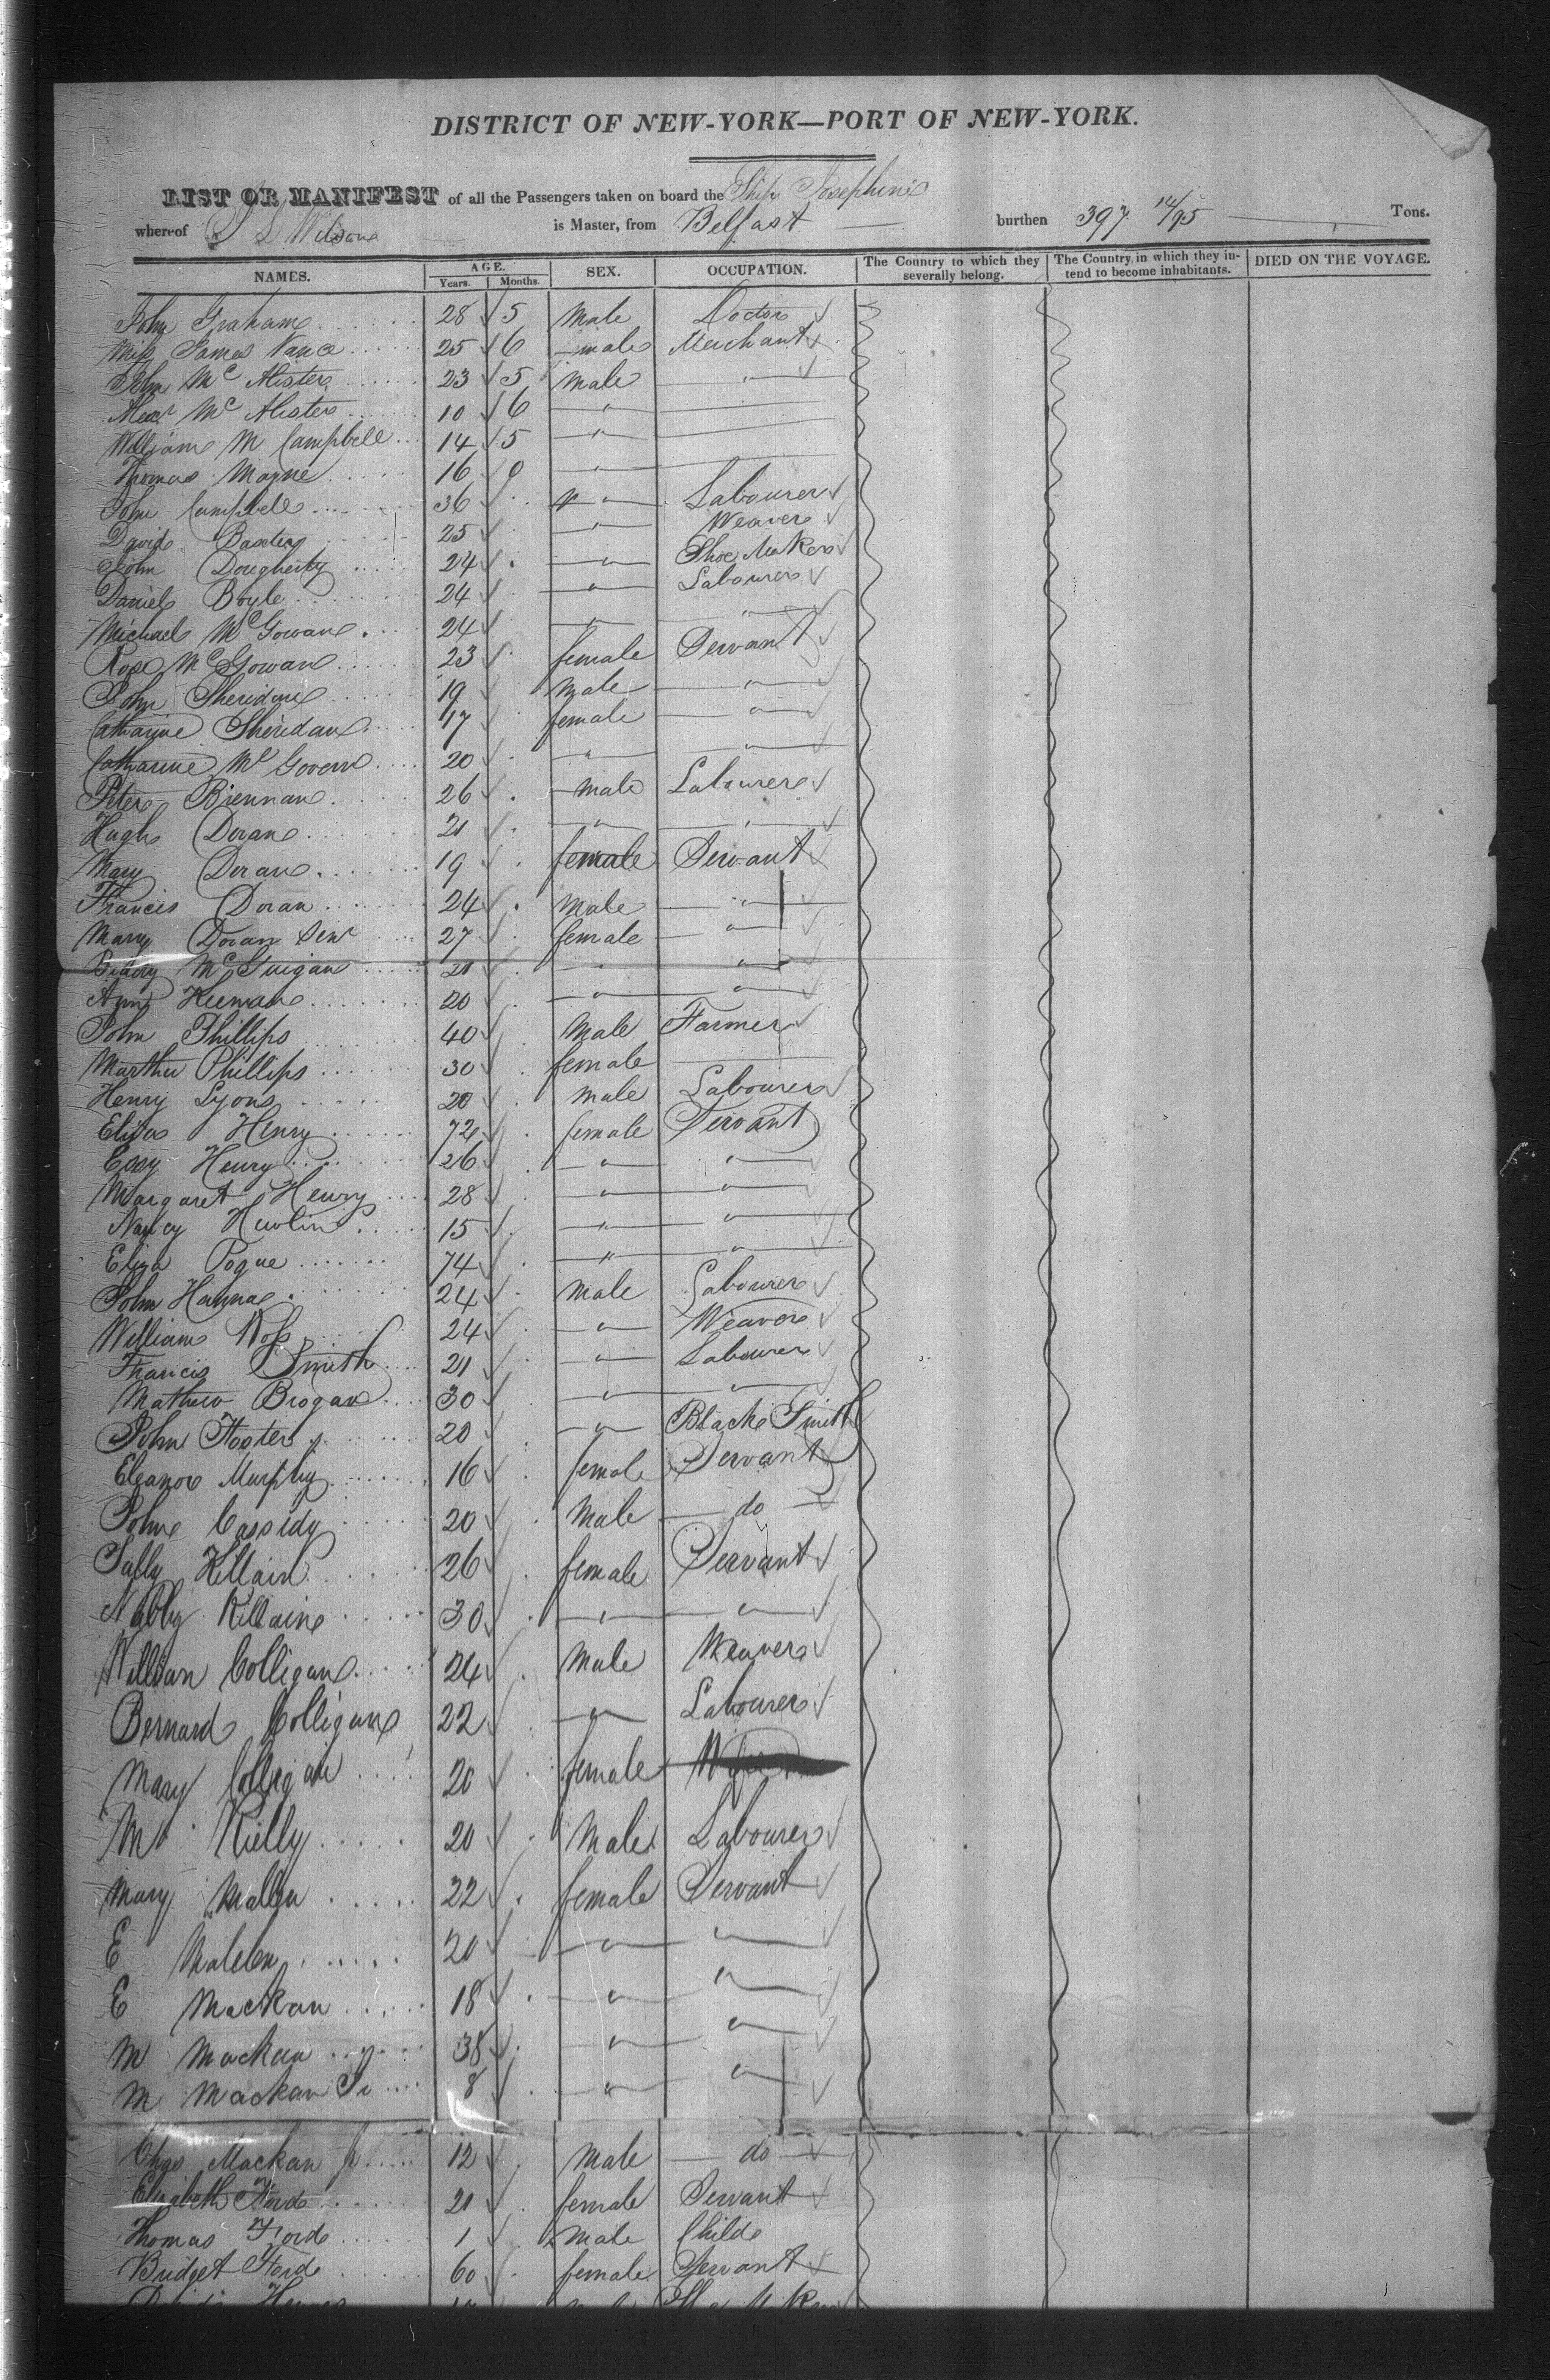 DISTRICT OF NEW-YORK—PORT OF NEW-YORK.
LIST OR MANIFEST of all the Passengers taken on board the Ship Josephine
whereof Wilson is Master, from Belfast burthen 397 14/95 Tons.
NAMES. AGE. Years. Months. SEX. OCCUPATION. The Country to which they severally belong. The Country in which they intend to become inhabitants. DIED ON THE VOYAGE.
John Graham 28 5 Male Doctor
James Vance 25 6 male Merchant
John Mc Alister 23 5 Male "
Alexr Mc Alister 10 6 "
William M Campbell 14 5 "
Thomas Mayne 16 0 "
John Campbell 36 " Labourer
David Baxter 25 " Weaver
John Dougherty 24 " Shoe Maker
Daniel Boyle 24 " Labourer
Michael McGowan 24 " "
Rose McGowan 23 female Servant
John Sheridan 19 Male "
Catharine Sheridan 17 female "
Catharine Mc Govern 20 " "
Peter Brennan 26 male Labourer
Hugh Doran 21 " "
Mary Doran 19 female Servant
Francis Doran 24 Male "
Mary Doran Senr 27 female "
McGuigan 20 " "
Ann Keenan 20 " "
John Phillips 40 Male Farmer
Martha Phillips 30 female
Henry Lyons 20 male Labourer
Eliza Henry 72 female Servant
Essy Henry 26 " "
Margaret Henry 28 " "
Nancy 15 " "
Eliza Pogue 74 " "
John Hanna 24 Male Labourer
William Ross 24 " Weaver
Francis Smith 21 " Labourer
Mathew Brogan 30 " "
John Foster 20 " Black Smith
Eleanor Murphy 16 female Servant
John Cassidy 20 Male do
Sally Killain 26 female Servant
Nabby Killain 30 " "
William Colligan 24 Male Weaver
Bernard Colligan 22 " Labourer
Mary Colligan 20 female
M Rielly 20 Male Labourer
Mary Mallen 22 female Servant
E Mallen 20 " "
E Mackan 18 " "
M Mackan 38 " "
M Mackan Jr 8 " "
Chas Mackan Jr 12 Male do
Elizabeth Forde 21 female Servant
Thomas Forde 1 Male Child
Bridget Forde 60 female Servant